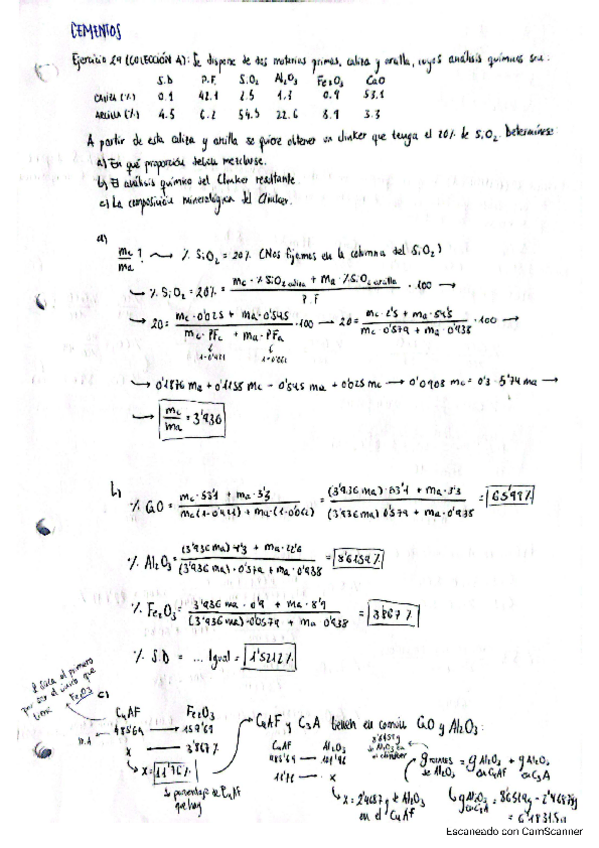 CEMENTOS
Ejercicio 29 (COLECCIÓN A): Se dispone de dos materias primas, caliza y arcilla, cuyos análisis químicos son:
S.D P.F. SiO₂ Al₂O₃ Fe₂O₃ CaO
CALIZA (%) 0.1 42.1 2.5 1.3 0.9 53.1
ARCILLA (%) 4.5 6.2 54.5 22.6 8.9 3.3
A partir de esta caliza y arcilla se quiere obtener un clinker que tenga el 20% de SiO₂. Determínese:
a) En qué proporción deben mezclarse.
b) El análisis químico del Clinker resultante.
c) La composición mineralógica del Clinker.
a)
mc/ma ? → % SiO₂ = 20% (Nos fijamos en la columna del SiO₂)
→ % SiO₂ = 20% = (mc · % SiO₂ caliza + ma · % SiO₂ arcilla)/P.F · 100 →
→ 20 = (mc · 0'025 + ma · 0'545)/(mc · PFc + ma · PFa) · 100 → 20 = (mc · 2'5 + ma · 54'5)/(mc · 0'579 + ma · 0'938) · 100 →
1-0'421 1-0'062
→ 0'1876 ma + 0'1158 mc = 0'545 ma + 0'025 mc → 0'0908 mc = 0'3574 ma →
→ mc/ma = 3'936
b) % CaO = (mc · 53'1 + ma · 3'3)/(mc (1-0'421) + ma · (1-0'062)) = ((3'936 ma) · 53'1 + ma · 3'3)/((3'936 ma) 0'579 + ma · 0'938) = 65'99%
% Al₂O₃ = ((3'936 ma) · 1'3 + ma · 22'6)/((3'936 ma) · 0'579 + ma · 0'938) = 8'6159%
% Fe₂O₃ = (3'936 ma · 0'9 + ma · 8'9)/((3'936 ma) · 0'0579 + ma 0'938) = 3'867%
% S.D = ... Igual = 1'5212%
c)
Se saca el primero
por ser el único que
tiene Fe₂O₃
C₄AF Fe₂O₃
485'69 → 159'69
x → 3'867%
→ x = 11'76%
porcentaje de C₄AF
que hay
C₄AF y C₃A tienen en común CaO y Al₂O₃:
C₄AF Al₂O₃
485'69 → 101'96
11'76 → x
→ x = 2'4687 g de Al₂O₃
en el C₄AF
8'6159 g
de Al₂O₃ en
el clinker
g totales de Al₂O₃ = g Al₂O₃ en C₄AF + g Al₂O₃ en C₃A
→ g Al₂O₃ en C₃A = 8'6159 g - 2'4687 g
Escaneado con CamScanner